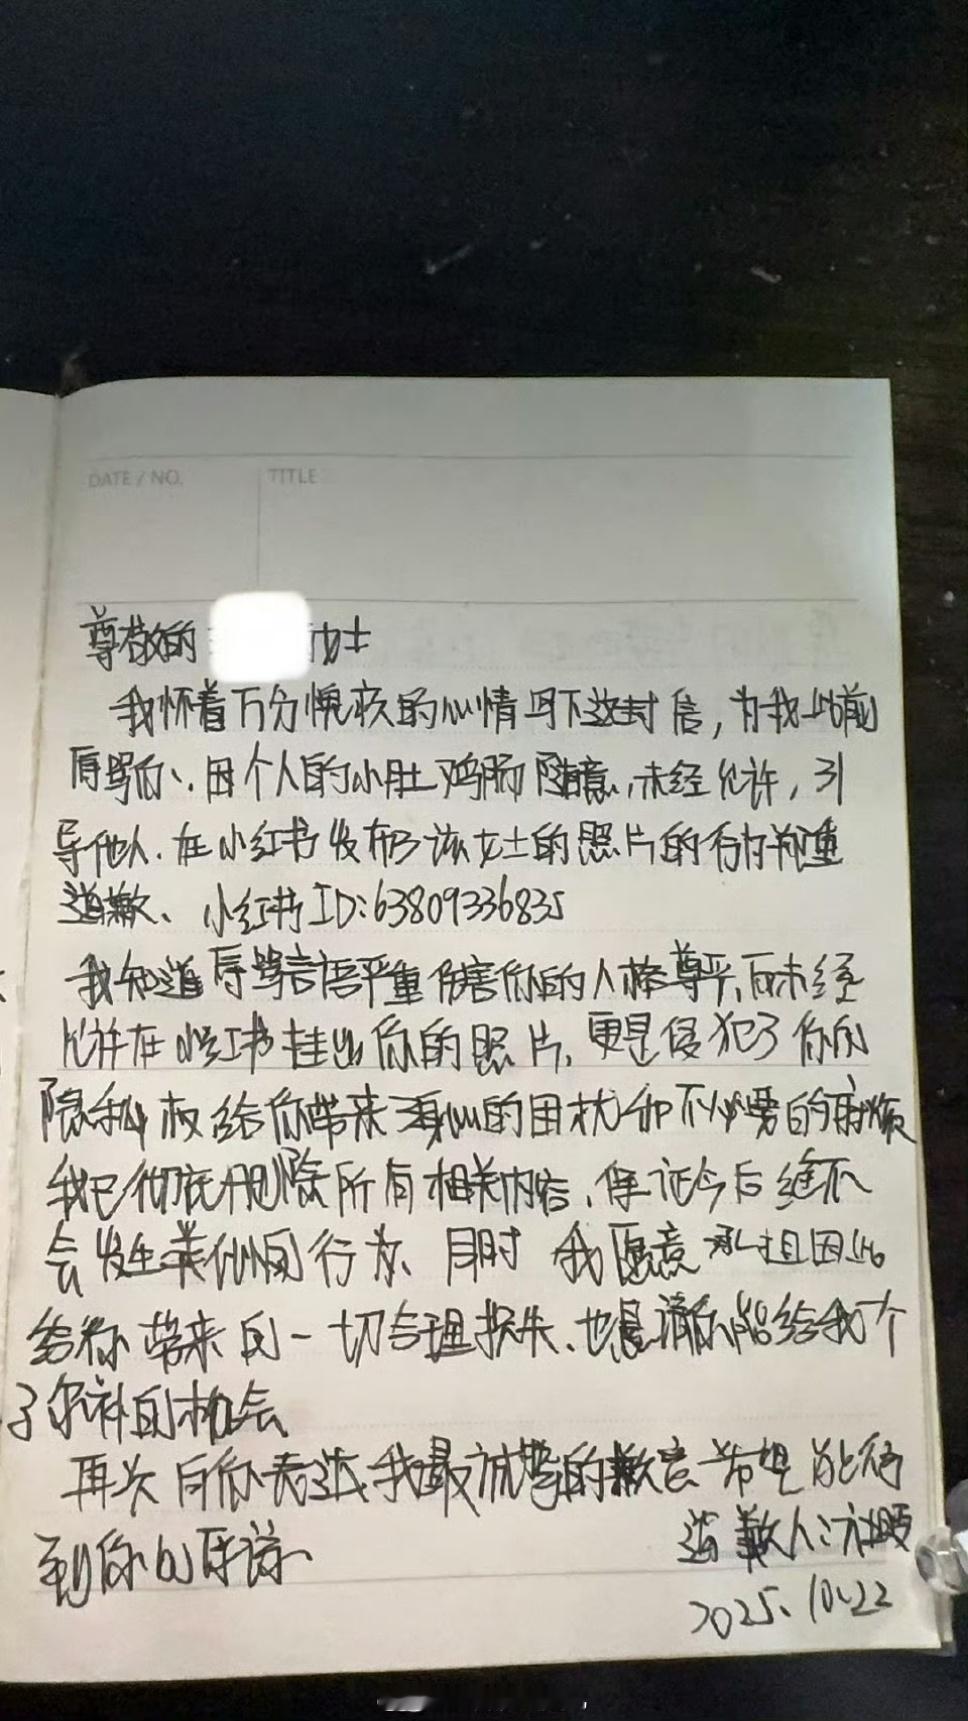 DATE / NO. TITLE
尊敬的 女士
我怀着万分愧疚的心情写下这封信，为我此前
辱骂你、因个人的小肚鸡肠 随意，未经允许，引
导他人、在小红书发布了该女士的照片的行为郑重
道歉、小红书ID:63809336835
我知道辱骂言语严重伤害你的人格尊严，而未经
允许在小红书挂出你的照片，更是侵犯了你的
隐私权给你带来身心的困扰和不必要的麻烦
我已彻底删除所有相关内容，保证今后绝不
会发生类似行为、同时 我愿意承担因此
给你带来的一切合理损失、也恳请你能给我个
弥补的机会
再次向你表达我最诚挚的歉意 希望能得
到你的原谅、
道歉人：
2025.10.22